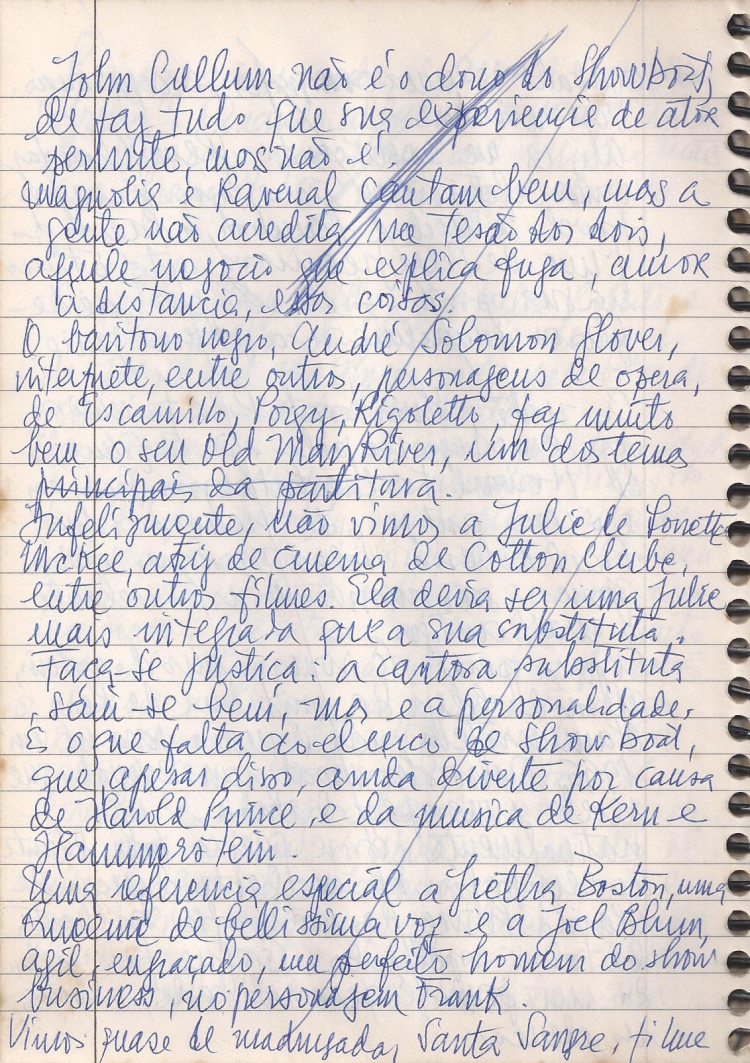 John Cullum não é o dono do Show boat,
ele faz tudo que sua experiencie de ator
permite, mas não é.
Magnolia e Ravenal cantam bem, mas a
gente não acredita na tesão dos dois,
aquele negocio que explica fuga, amor
à distancia, essas coisas.
O baritono negro, André Solomon Glover,
interprete, entre outros, personagens de opera,
de Escamillo, Porgy, Rigoletto, faz muito
bem o seu Old Man River, um dos temas
principais da partitura.
Infelizmente, não vimos a Julie de Lonette
McKee, atriz de cinema de Cotton Clube,
entre outros filmes. Ela devia ser uma Julie
mais integrada que a sua substituta.
Faça-se justiça: a cantora substituta
, saiu-se bem, mas e a personalidade.
É o que falta ao elenco de Show boat,
que, apesar disso, ainda diverte por causa
de Harold Prince, e da musica de Kern e
Hammerstein.
Uma referencia especial a Gretha Boston, uma
Queenie de bellissima voz e a Joel Blum,
agil, engraçado, um perfeito homem do show
business, no personagem Frank.
Vimos quase de madrugada, Santa Sangre, filme